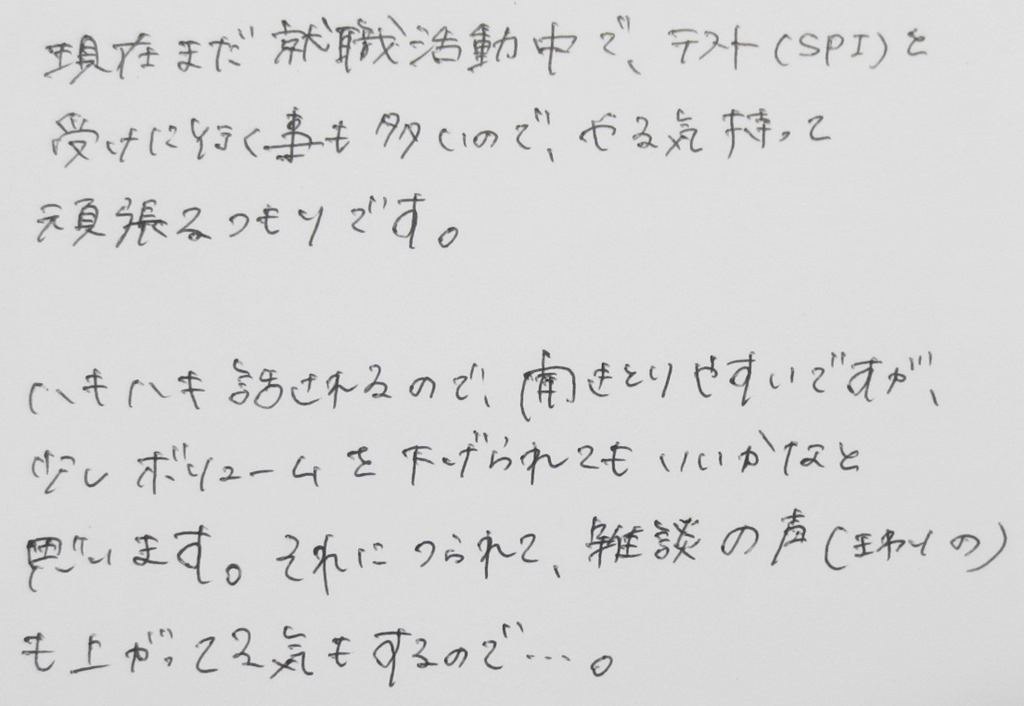 現在まだ就職活動中で、テスト(SPI)を
受けに行く事も多いので、やる気持って
頑張るつもりです。
ハキハキ話されるので、聞きとりやすいですが、
少しボリュームを下げられてもいいかなと
思います。それにつられて、雑談の声(まわりの)
も上がってる気もするので…。